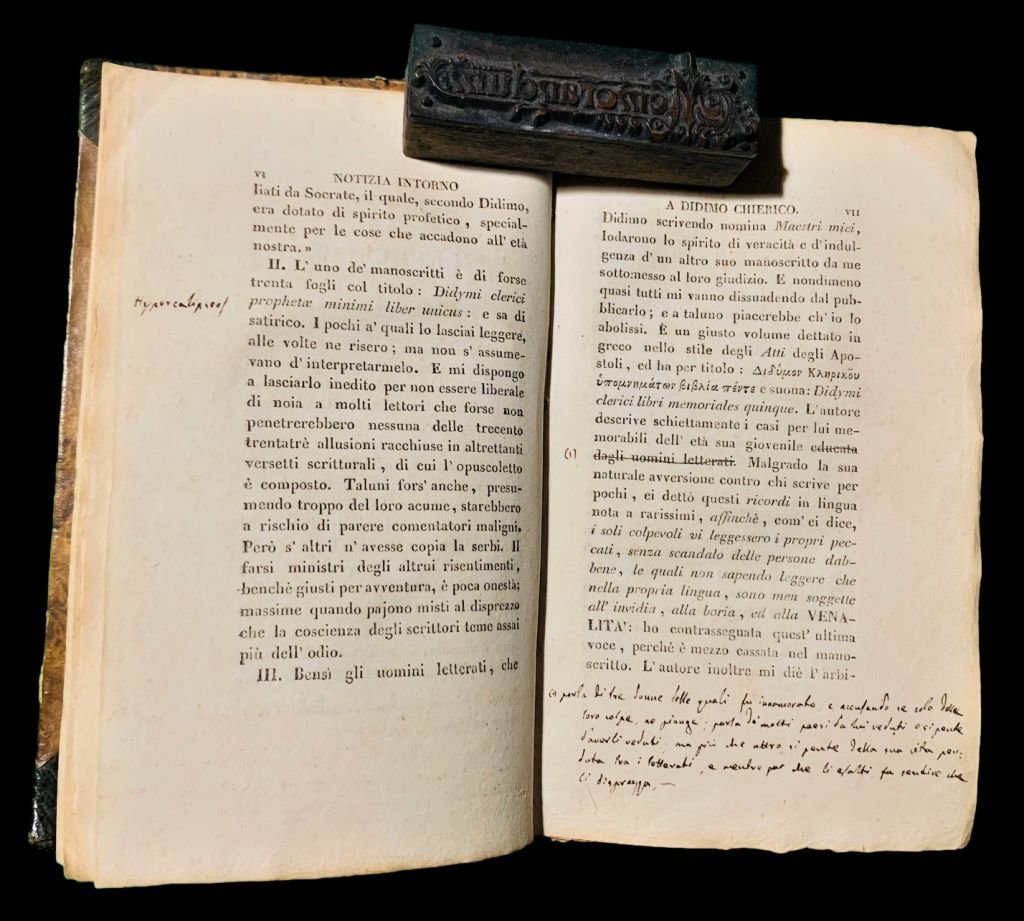 Memorandum
VI NOTIZIA INTORNO
liati da Socrate, il quale, secondo Didimo,
era dotato di spirito profetico, special-
mente per le cose che accadono all' età
nostra. »
II. L' uno de' manoscritti è di forse
trenta fogli col titolo : Didymi clerici
prophetæ minimi liber unicus : e sa di
satirico. I pochi a' quali lo lasciai leggere,
alle volte ne risero ; ma non s' assume-
vano d' interpretarmelo. E mi dispongo
a lasciarlo inedito per non essere liberale
di noia a molti lettori che forse non
penetrerebbero nessuna delle trecento
trentatrè allusioni racchiuse in altrettanti
versetti scritturali, di cui l' opuscoletto
è composto. Taluni fors' anche, presu-
mendo troppo del loro acume, starebbero
a rischio di parere comentatori maligni.
Però s' altri n' avesse copia la serbi. Il
farsi ministri degli altrui risentimenti,
benchè giusti per avventura, è poca onestà;
massime quando pajono misti al disprezzo
che la coscienza degli scrittori teme assai
più dell' odio.
III. Bensì gli uomini letterati, che
A DIDIMO CHIERICO. VII
Didimo scrivendo nomina Maestri miei,
lodarono lo spirito di veracità e d' indul-
genza d' un altro suo manoscritto da me
sottomesso al loro giudizio. E nondimeno
quasi tutti mi vanno dissuadendo dal pub-
blicarlo ; e a taluno piacerebbe ch' io lo
abolissi. È un giusto volume dettato in
greco nello stile degli Atti degli Apo-
stoli, ed ha per titolo : Διδύμου Κληρικοῦ
ὑπομνημάτων βιβλία πέντε e suona: Didymi
clerici libri memoriales quinque. L' autore
descrive schiettamente i casi per lui me-
morabili dell' età sua giovenile educata
(1) dagli uomini letterati. Malgrado la sua
naturale avversione contro chi scrive per
pochi, ei dettò questi ricordi in lingua
nota a rarissimi, affinchè, com' ei dice,
i soli colpevoli vi leggessero i propri pec-
cati, senza scandalo delle persone dab-
bene, le quali non sapendo leggere che
nella propria lingua, sono men soggette
all' invidia, alla boria, ed alla VENA-
LITA': ho contrassegnata quest' ultima
voce, perchè è mezzo cassata nel mano-
scritto. L' autore inoltre mi diè l' arbi-
(1) parla di tre donne delle quali fu innamorato, e accusando se solo delle
loro colpe, ne piange; parla de' molti paesi da lui veduti e si pente
d'averli veduti. ma più che altro si pente della sua vita per-
duta tra i letterati, e mentre par che li esalti, fa sentire che
li disprezza, —